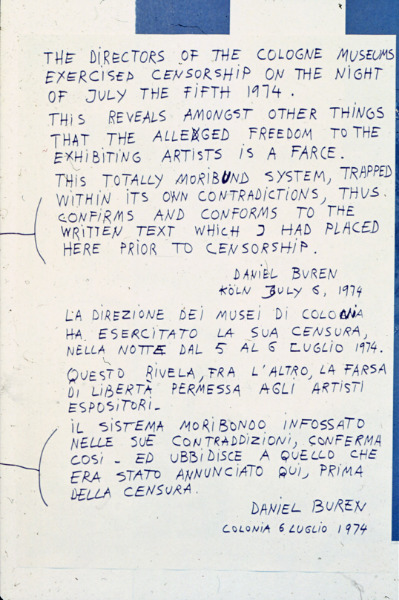 THE DIRECTORS OF THE COLOGNE MUSEUMS
EXERCISED CENSORSHIP ON THE NIGHT
OF JULY THE FIFTH 1974.
THIS REVEALS AMONGST OTHER THINGS
THAT THE ALLEDGED FREEDOM TO THE
EXHIBITING ARTISTS IS A FARCE.
THIS TOTALLY MORIBUND SYSTEM, TRAPPED
WITHIN ITS OWN CONTRADICTIONS, THUS
CONFIRMS AND CONFORMS TO THE
WRITTEN TEXT WHICH I HAD PLACED
HERE PRIOR TO CENSORSHIP.
DANIEL BUREN
KÖLN JULY 6, 1974
LA DIREZIONE DEI MUSEI DI COLONIA
HA ESERCITATO LA SUA CENSURA,
NELLA NOTTE DAL 5 AL 6 LUGLIO 1974.
QUESTO RIVELA, FRA L'ALTRO, LA FARSA
DI LIBERTÀ PERMESSA AGLI ARTISTI
ESPOSITORI.
IL SISTEMA MORIBONDO INFOSSATO
NELLE SUE CONTRADDIZIONI, CONFERMA
COSI - ED UBBIDISCE A QUELLO CHE
ERA STATO ANNUNCIATO QUI, PRIMA
DELLA CENSURA.
DANIEL BUREN
COLONIA 6 LUGLIO 1974